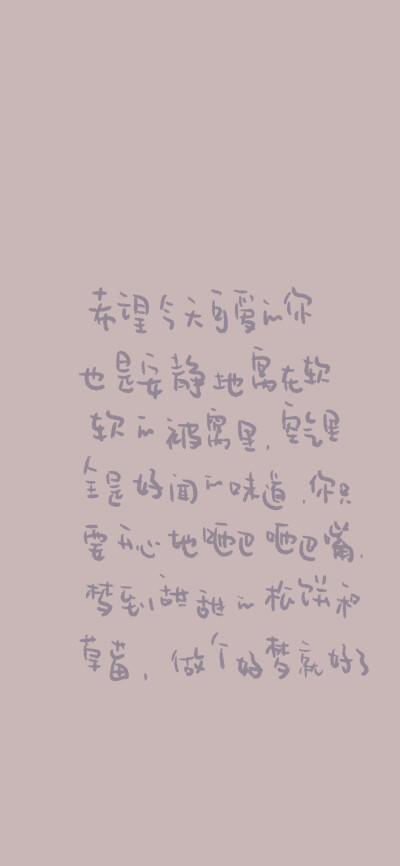 希望今天可爱的你
也是安静地窝在软
软的被窝里,空气里
全是好闻的味道,你只
要开心地吧吧嘴,
梦到甜甜的松饼和
草莓,做个好梦就好了